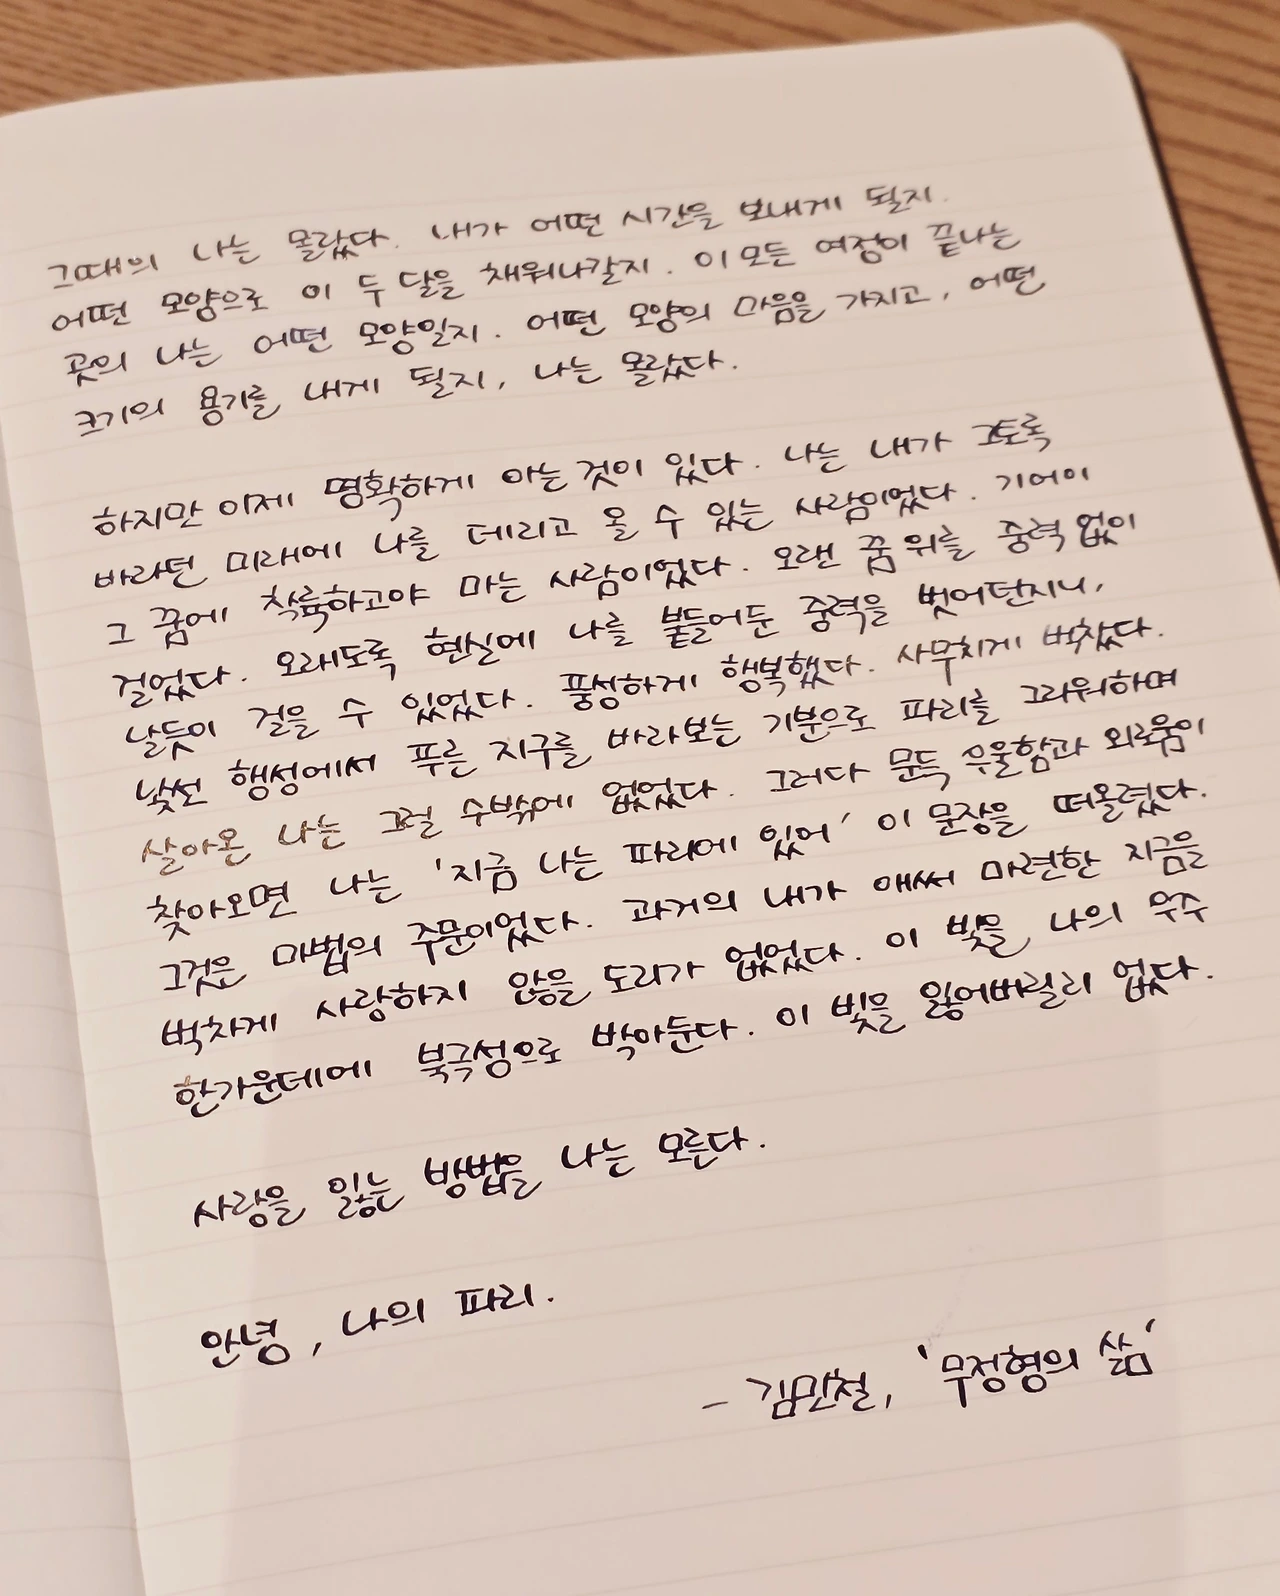 그때의 나는 몰랐다. 내가 어떤 시간을 보내게 될지.
어떤 모양으로 이 두 달을 채워나갈지. 이 모든 여정이 끝나는
곳의 나는 어떤 모양일지. 어떤 모양의 마음을 가지고, 어떤
크기의 용기를 내게 될지, 나는 몰랐다.
하지만 이제 명확하게 아는 것이 있다. 나는 내가 그토록
바라던 미래에 나를 데리고 올 수 있는 사람이었다. 기어이
그 꿈에 착륙하고야 마는 사람이었다. 오랜 꿈 위를 중력 없이
걸었다. 오래도록 현실에 나를 붙들어둔 중력을 벗어던지니,
날듯이 걸을 수 있었다. 풍성하게 행복했다. 사무치게 벅찼다.
낯선 행성에서 푸른 지구를 바라보는 기분으로 파리를 그리워하며
살아온 나는 그럴 수밖에 없었다. 그러다 문득 우울함과 외로움이
찾아오면 나는 '지금 나는 파리에 있어' 이 문장을 떠올렸다.
그것은 마법의 주문이었다. 과거의 내가 애써 마련한 지금을
벅차게 사랑하지 않을 도리가 없었다. 이 빛을 나의 우주
한가운데에 북극성으로 박아둔다. 이 빛을 잃어버릴리 없다.
사랑을 잃는 방법을 나는 모른다.
안녕, 나의 파리.
- 김민철, '무정형의 삶'